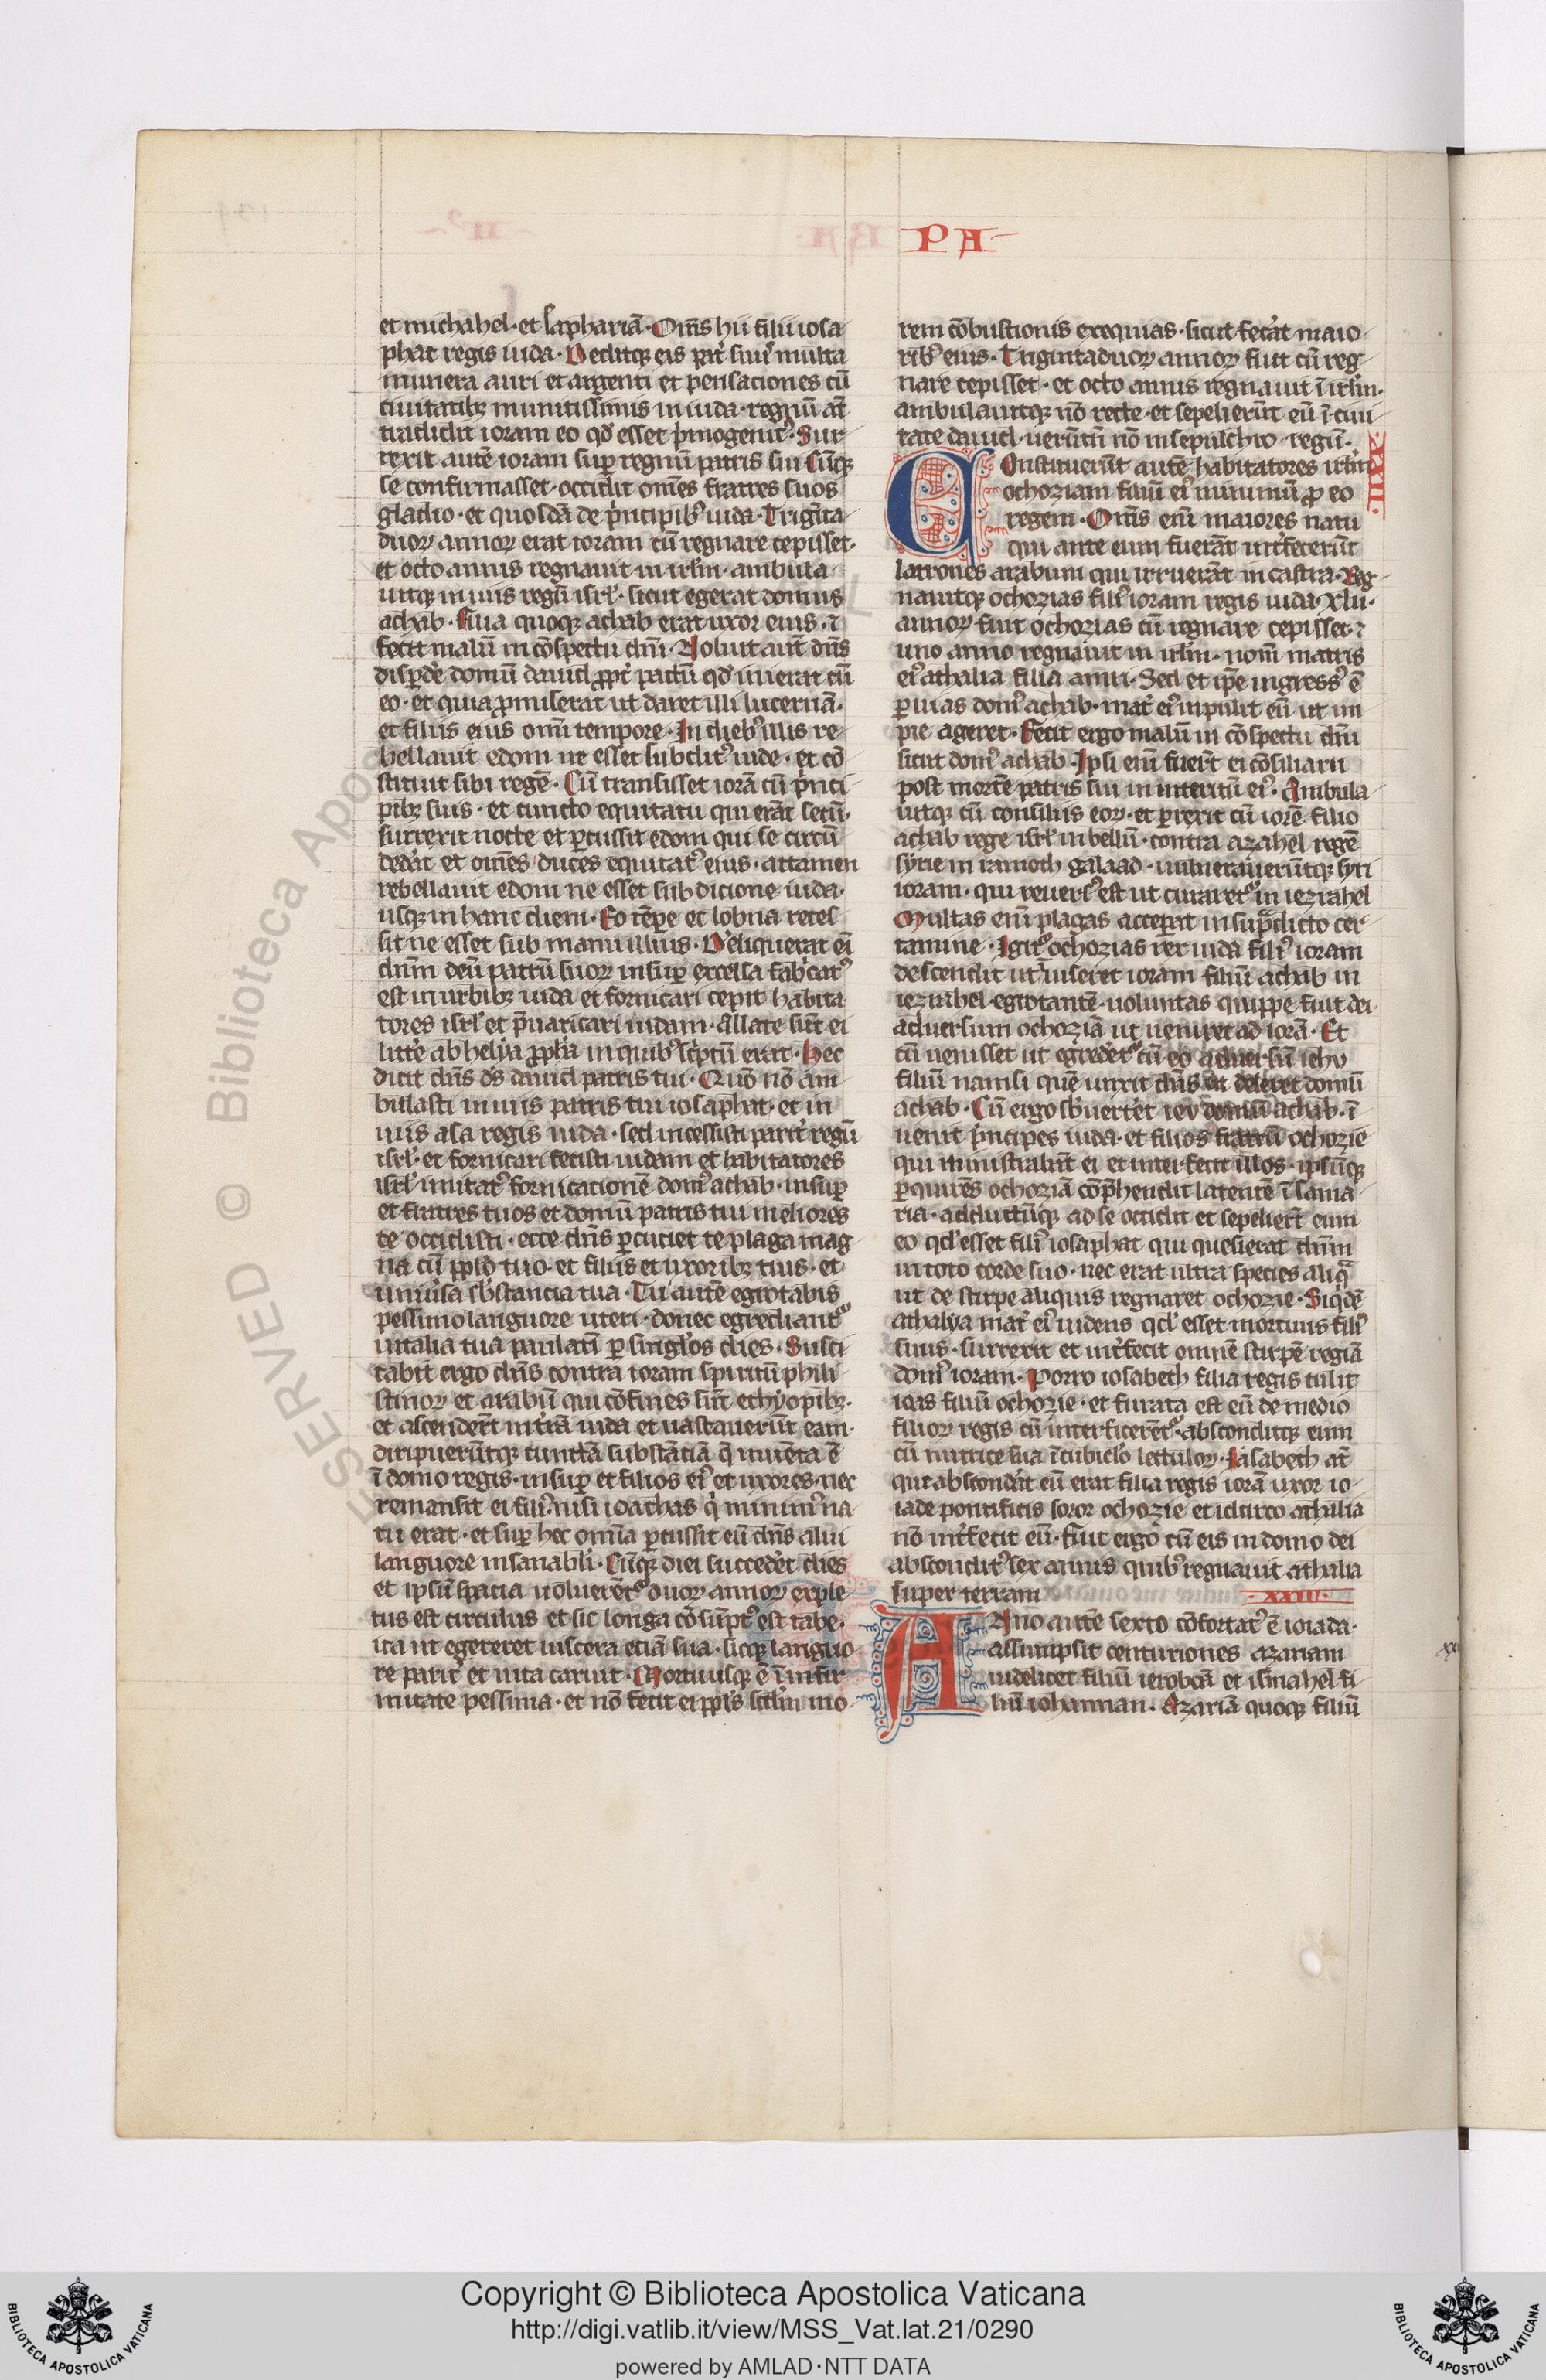 PA
et michahel · et saphariā · Om̄s hii filii iosa
phat regis iuda · Deditqꝫ eis pat̓ suus multa
munera auri et argenti et pensaciones cū
ciuitatibꝫ munitissimis in iuda · regnū aūt
tradidit ioram eo qd̓ esset p̓mogenitꝰ · Sur
rexit autē ioram suꝑ regnū patris sui cūqꝫ
se confirmasset · occidit om̄es fratres suos
gladio · et quosdā de p̓ncipibꝰ iuda · Triginta
duoꝝ annoꝝ erat ioram cū regnare cepisset ·
et octo annis regnauit in irlm̄ · ambula
uitqꝫ in uiis regū isrl̓ · sicut egerat domus
achab · filia quoqꝫ achab erat uxor eius · ⁊
fecit malū in cōspectu dn̄i · Noluit aūt dn̄s
disꝑde̓ domū dauid ꝓpt̓ pactū qd̓ inierat cū
eo · et quia ꝓmiserat ut daret illi lucernā ·
et filiis eius omī tempore · In diebꝰ illis re
bellauit edom ne esset subditꝰ iude · et cō
stituit sibi regē · Cū transisset iorā cū p̓nci
pibꝫ suis · et cuncto equitatu qui erāt secū ·
surrexit nocte et ꝑcussit edom qui se circū
dede̓t et om̄es duces equitatꝰ eius · attamen
rebellauit edom ne esset sub dicione iuda ·
usqꝫ in hanc diem · Eo tēpe et lobna reces
sit ne esset sub manu illius · D̓eliquerat eī
dn̄m deū patrū suoꝝ insuꝑ excelsa fab̓catꝰ
est in urbibꝫ iuda et fornicari cepit habita
tores isrl̓ et p̄uaricari iudam · Allate sūt ei
litt̓e ab helya ꝓph̄a in quibꝰ sc̓ptū erat · Hec
dicit dn̄s ds̄ dauid patris tui · Quō nō am
bulasti in uiis patris tui iosaphat · et in
uiis asa regis iuda · sed incessisti per it̓ regū
isrl̓ · et fornicari fecisti iudam et habitatores
isrl̓ imitatꝰ fornicacionē domꝰ achab · insuꝑ
et fratres tuos et domū patris tui meliores
te occidisti · ecce dn̄s ꝑcutiet te plaga mag
na cū ppl̓o tuo · et filiis et uxoribꝫ tuis · et
uniu̓sa sb̓stancia tua · Tu autē egrotabis
pessimo languore uteri · donec egrediantᷣ
uitalia tua paulatī ꝑ singl̓os dies · Susci
tabit ergo dn̄s contra ioram spiritū phili
stinoꝝ et arabū qui cōfines sūt ethyopibꝫ ·
et ascender̄t in tr̄a iuda et uastauerūt eam ·
diripuerūtqꝫ cunctā substāciā q̄ inuēta ē
ī domo regis · insuꝑ et filios eiꝰ et uxores · nec
remansit ei filiꝰ nisi ioachas q̓ minimꝰ na
tu erat · et suꝑ hec omīa ꝑcussit eū dn̄s alui
languore insanabili · Cūqꝫ diei succede̓t dies
et ipsū spacia uoluerētᷣ duoꝝ annoꝝ exple
tus est circulus et sic longa cōsūptꝰ est tabe ·
ita ut egereret uiscera etiā sua · sicqꝫ languo
re parit̓ et uita caruit · Mortuusqꝫ ē ī infir
mitate pessima · et nō fecit ei ppl̓s scd̓m mo
rem cōbustionis exequias · sicut fece̓at maio
ribꝰ eius · Trigintaduoꝝ annoꝝ fuit cū reg
nare cepisset · et octo annis regnauit ī irlm̄ ·
ambulauitqꝫ nō recte · et sepelierūt eū ī ciui
tate dauid · uerūtū nō in sepulchro regū ·
·XXII·
Constituerūt autē habitatores irlm̄
ochoziam filiū eiꝰ minimū ꝓ eo
regem · Om̄s enī maiores natu
qui ante eum fuerāt int̓fecerūt
latrones arabum qui irruerāt in castra · Reg
nauitqꝫ ochozias filiꝰ ioram regis iuda · xlii ·
annoꝝ fuit ochozias cū regnare cepisset · ⁊
uno anno regnauit in irlm̄ · nom̄ matris
eiꝰ athalia filia amri · Sed et ip̄e ingressꝰ ē
ꝑ uias domꝰ achab · mat̓ eiꝰ inpulit eū ut im
pie ageret · Fecit ergo malū in cōspectu dn̄i
sicut domꝰ achab · Ipsi enī fuer̄t ei cōsiliarii
post mortē patris sui in interitū eiꝰ · Ambula
uitqꝫ cū consiliis eoꝝ · et ꝑrexit cū iorē filio
achab rege isrl̓ in bellū · contra azahel regē
syrie in ramoth galaad · uulnerauerūtqꝫ syri
ioram · qui reuersꝰ est ut curaretᷣ in iezrahel
Multas enī plagas accepat in sup̄dicto cer
tamine · Igitᷣ ochozias rex iuda filiꝰ ioram
descendit ut uiseret ioram filiū achab in
iezrahel egrotantē · uoluntas quippe fuit dei
aduersum ochoziā ut ueniret ad iorā · Et
cū uenisset ut egrederetᷣ cū eo aduersū iehu
filiū namsi quē unxit dn̄s ut deleret domū
achab · Cū ergo sb̓uertet ieu domū achab · ī
uenit p̓ncipes iuda · et filios fratrū ochozie
qui ministrabāt ei et interfecit illos · ipsūqꝫ
ꝑquirēs ochoziā cōp̄hendit latentē ī sama
ria · adductūqꝫ ad se occidit et sepelier̄t eum
eo qd̓ esset filiꝰ iosaphat qui quesierat dn̄m
in toto corde suo · nec erat ultra species aliq̄
ut de stirpe aliquis regnaret ochozie · Siq̓dē
athalya mat̓ eiꝰ uidens qd̓ esset mortuus filiꝰ
suus · surrexit et int̓fecit omnē stirpē regiā
domꝰ ioram · Porro iosabeth filia regis tulit
ioas filiū ochozie · et furata est eū de medio
filioꝝ regis cū interficerētᷣ · absconditqꝫ eum
cū nutrice sua ī cubicl̓o lectuloꝝ · Iosabeth aūt
que absconde̓t eū erat filia regis iorā uxor io
iade pontificis soror ochozie et idcirco athalia
nō int̓fecit eū · Fuit ergo cū eis in domo dei
absconditꝰ sex annis quibꝰ regnauit athalia
super terram
·XXIII·
Anno autē sexto cōfortatꝰ ē ioiada ·
assumpsit centuriones azariam
uidelicet filiū ieroboā et ismahel fi
liū iohannan · Azariā quoqꝫ filiū
© Biblioteca Apo
ESERVED
Copyright © Biblioteca Apostolica Vaticana
http://digi.vatlib.it/view/MSS_Vat.lat.21/0290
powered by AMLAD·NTT DATA
BIBLIOTECA APOSTOLICA VATICANA
BIBLIOTECA APOSTOLICA VATICANA